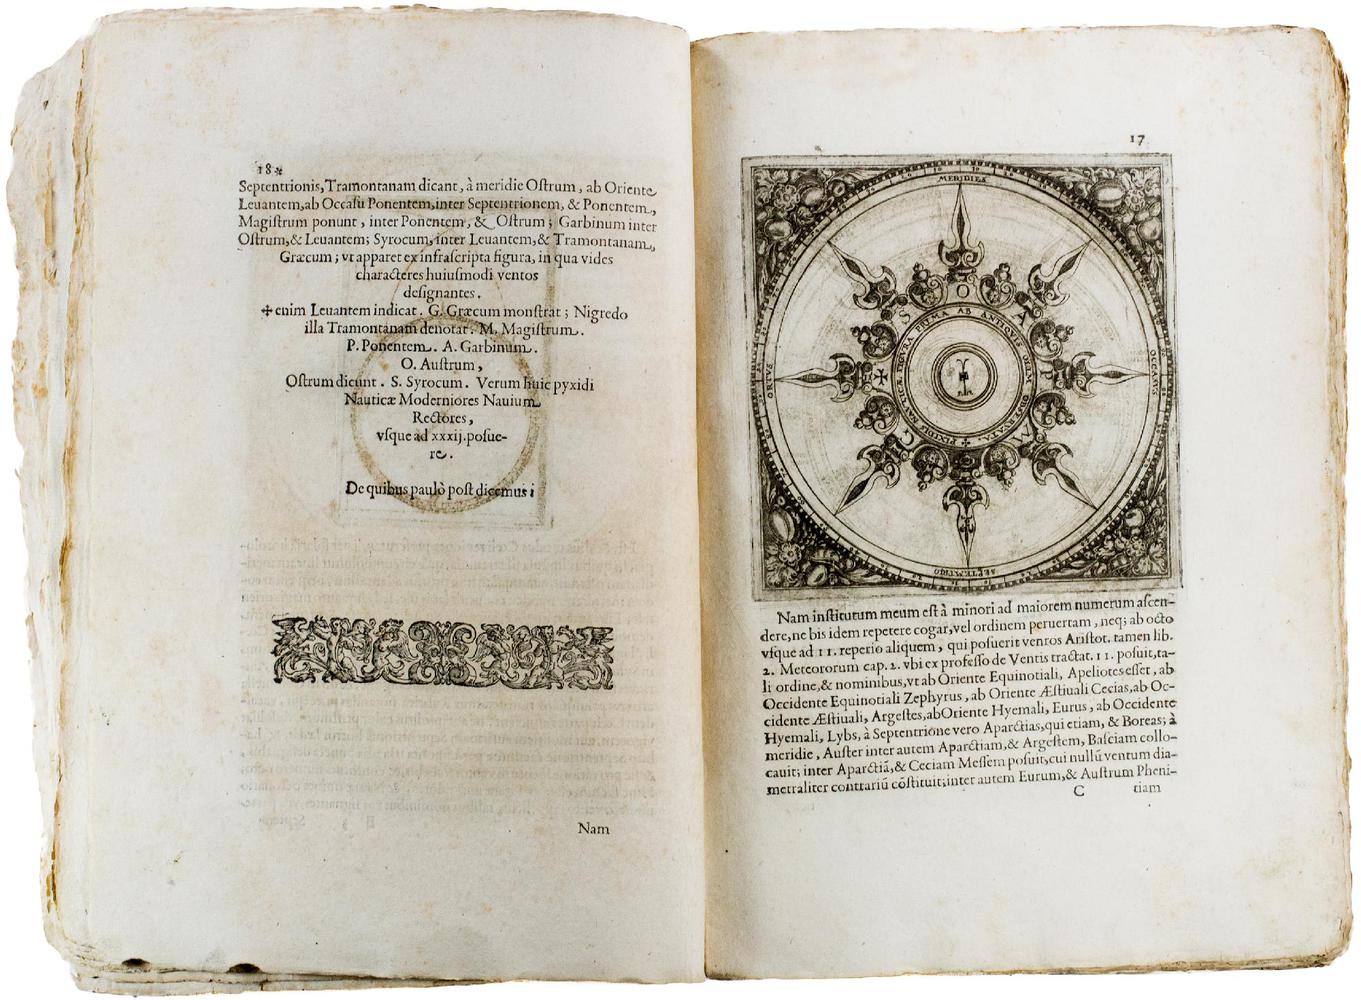 18
Septentrionis,Tramontanam dicant, à meridie Oſtrum, ab Oriente
Leuantem,ab Occaſu Ponentem,inter Septentrionem, & Ponentem,
Magiſtrum ponunt, inter Ponentem, & Oſtrum; Garbinum inter
Oſtrum,& Leuantem; Syrocum, inter Leuantem,& Tramontanam,
Græcum; vt apparet ex infraſcripta figura, in qua vides
characteres huiuſmodi ventos
deſignantes.
✣ enim Leuantem indicat. G. Græcum monſtrat; Nigredo
illa Tramontanam denotat. M. Magiſtrum.
P. Ponentem. A. Garbinum.
O. Auſtrum,
Oſtrum dicunt. S. Syrocum. Verum huic pyxidi
Nauticæ Moderniores Nauium
Rectores,
vſque ad xxxij. poſue-
re.
De quibus paulò poſt dicemus i
Nam
17
MERIDIES
OCCASVS
SEPTEMTRIO
ORTVS
O
A
P
M
G
✣
S
FIGVRA PRIMA AB ANTIQVIS OLIM
PIXIDIS NAV
Nam inſtitutum meum eſt à minori ad maiorem numerum aſcen-
dere,ne bis idem repetere cogar,vel ordinem peruertam, neq; ab octo
vſque ad 11. reperio aliquem, qui poſuerit ventos Ariſtot. tamen lib.
2. Meteororum cap. 2. vbi ex profeſſo de Ventis tractat. 11. poſuit,ta-
li ordine,& nominibus,vt ab Oriente Equinotiali, Apeliotes eſſet, ab
Occidente Equinotiali Zephyrus, ab Oriente Æſtiuali Cecias,ab Oc-
cidente Æſtiuali, Argeſtes,ab Oriente Hyemali, Eurus, ab Occidente
Hyemali, Lybs, à Septentrione vero Aparctias,qui etiam, & Boreas; à
meridie, Auſter inter autem Aparctiam,& Argeſtem, Baſciam collo-
cauit; inter Aparctiã,& Ceciam Meſſem poſuit,cui nullũ ventum dia-
metraliter contrariũ cõſtituit;inter autem Eurum,& Auſtrum Pheni-
C tiam